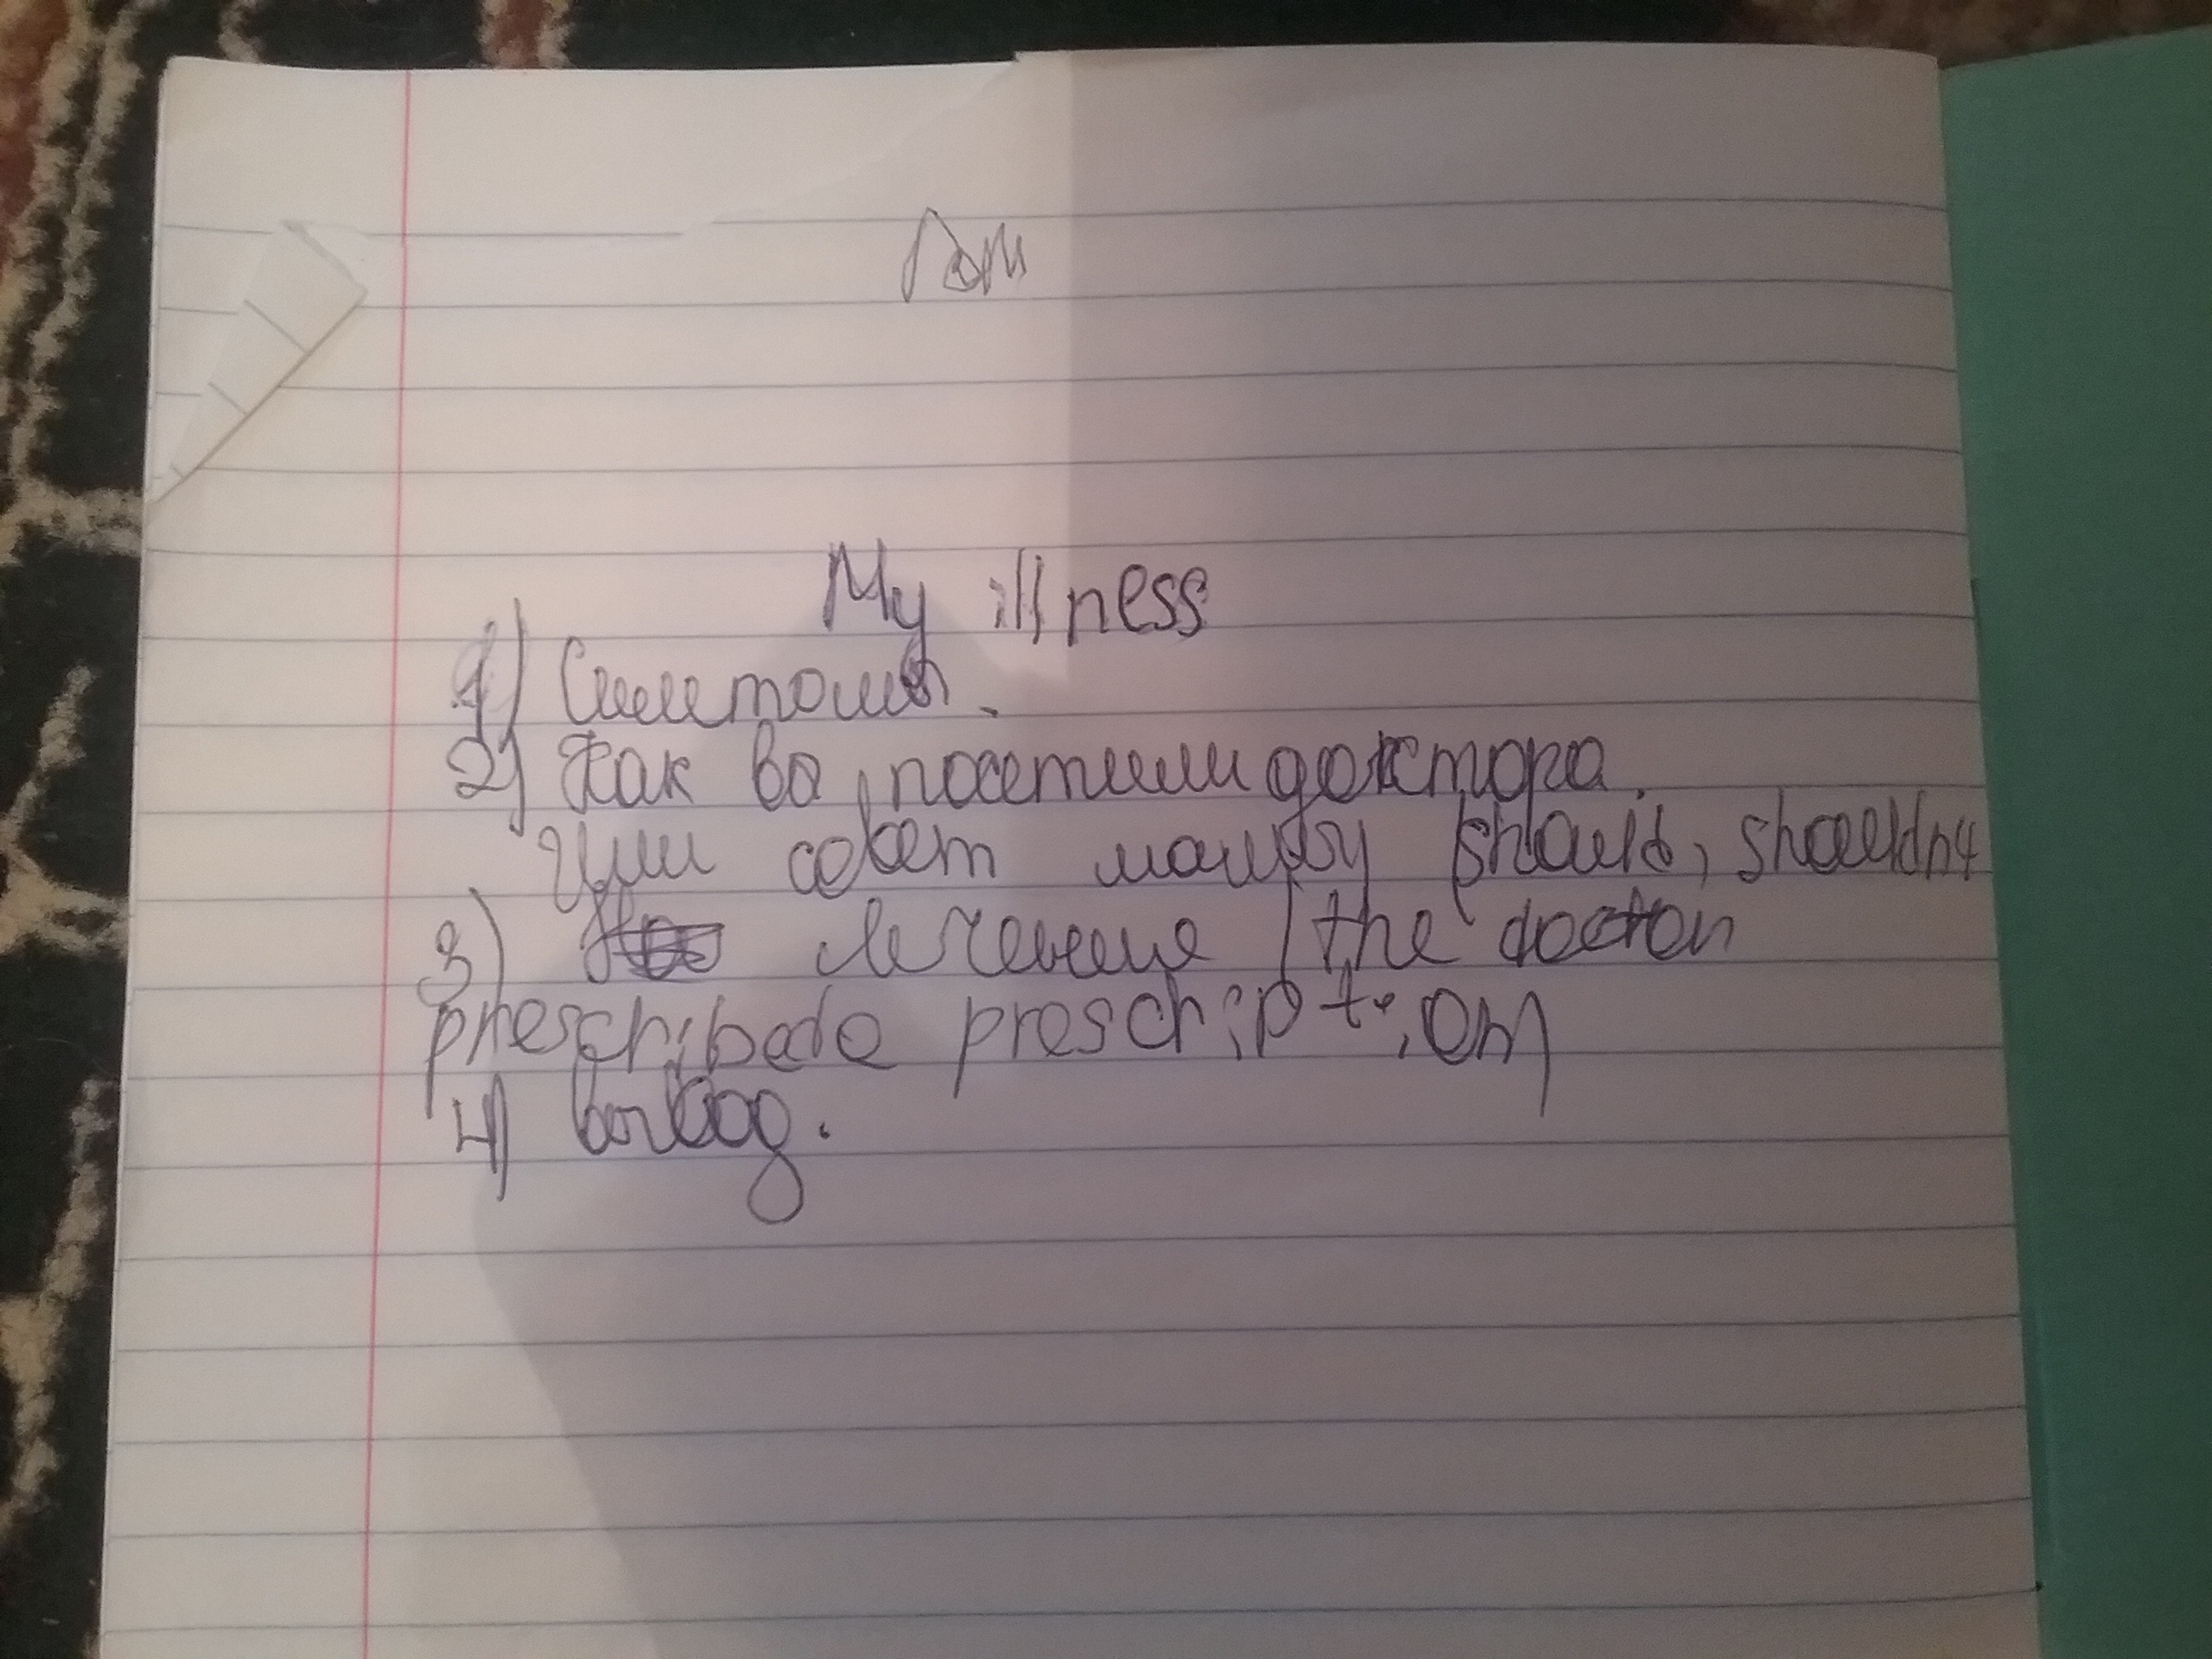 My illness
1) Симптомы.
2) Как вы посетили доктора.
совет should, shouldn4
3) лечение the docton
prescribede prescription
4) вывод.